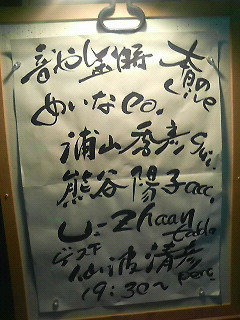 音や金時 春の
Live
めいなCo.
浦山秀彦 gui.
熊谷陽子 acc.
U-zhaan
tabla
ゲスト
仙波清彦
perc.
19:30〜